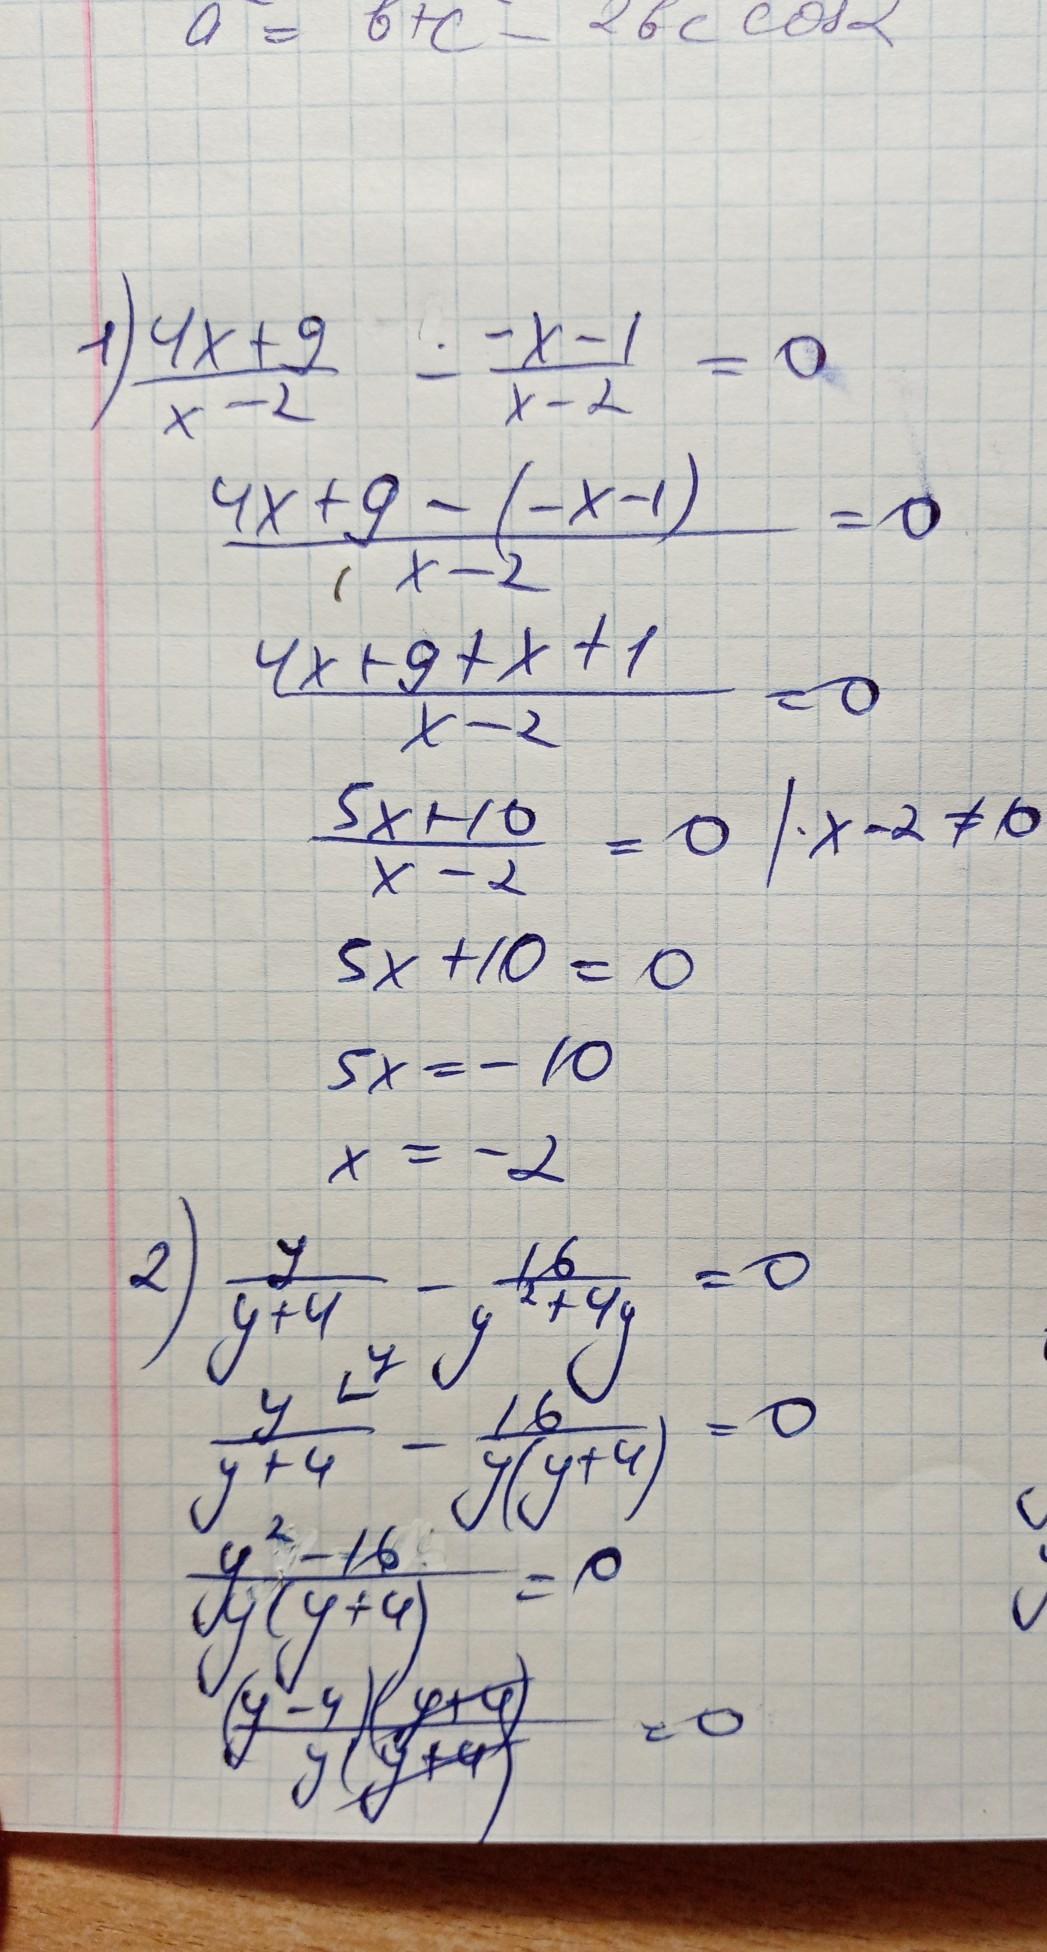 a = b+c - 2bc cos α
1) (4x+9)/(x-2) - (-x-1)/(x-2) = 0
(4x+9-(-x-1))/(x-2) = 0
(4x+9+x+1)/(x-2) = 0
(5x+10)/(x-2) = 0 | · x-2 ≠ 0
5x+10 = 0
5x = -10
x = -2
2) y/(y+4) - 16/(y²+4y) = 0
y^{∟y}/(y+4) - 16/(y(y+4)) = 0
(y²-16)/(y(y+4)) = 0
((y-4)(y+4))/(y(y+4)) = 0